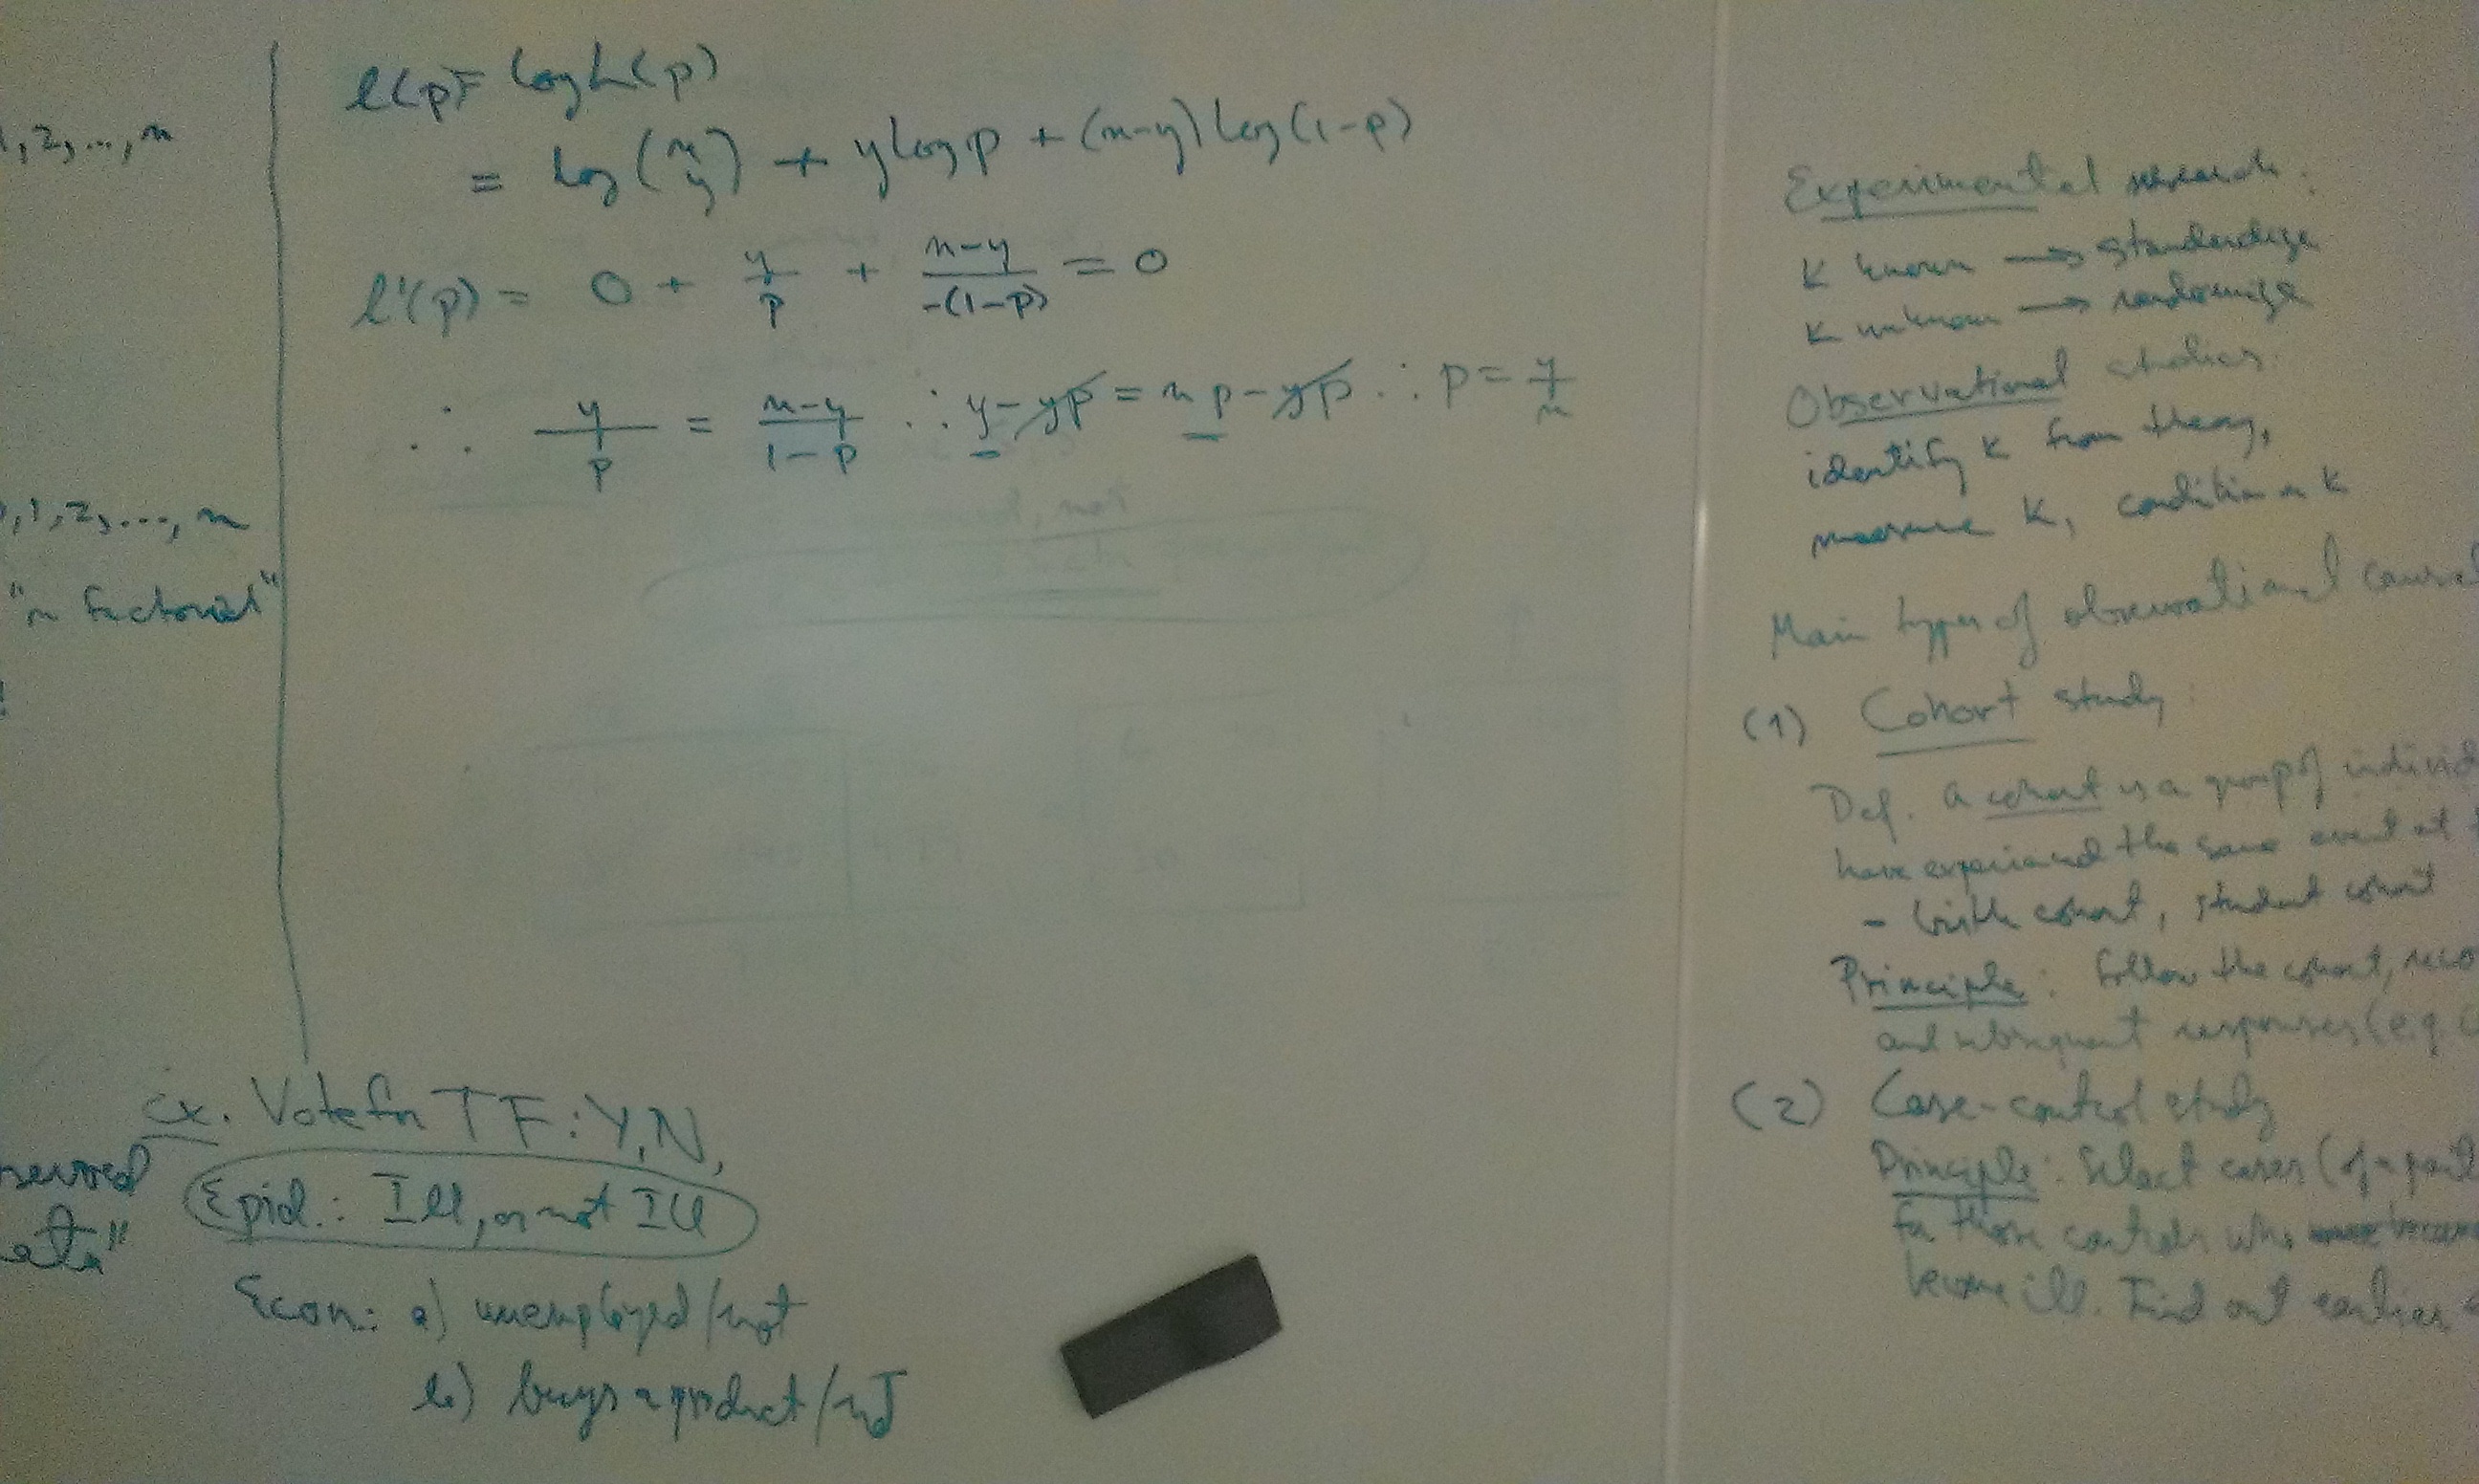 1, 2, ..., n
, 1, 2, ..., n
"n factorial"
!
served
l(p) = log L(p)
= log (n y) + y log p + (n-y) log (1-p)
l'(p) = 0 + y/p + n-y/-(1-p) = 0
∴ y/p = n-y/1-p ∴ y - yp = np - yp ∴ p = y/n
, not
Ex. Vote for TF: Y, N,
Epid.: Ill, or not Ill
Econ: a) unemployed/not
b) buys a product/not
Experimental research:
K known → standardize
K unknown → randomize
Observational studies
identify K from theory,
measure K, condition on K
Main types of observational causal
(1) Cohort study:
Def. A cohort is a group of individ
have experienced the same event at t
- birth cohort, student cohort
Principle: Follow the cohort, reco
and subsequent responses (e.g.
(2) Case-control study
Principle: Select cases (of a parti
for those controls who
become ill. Find out earlier